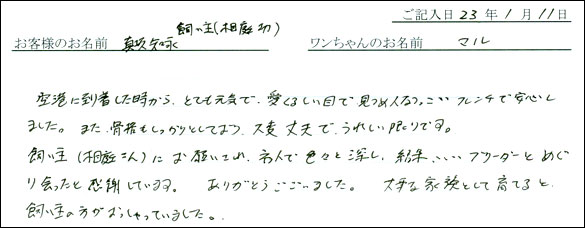 ご記入日 23年 1月 11日
飼い主(相庭 功)
お客様のお名前 真坂
ワンちゃんのお名前 マル
空港に到着した時から、とても元気で、愛くるしい目で見つめ フレンチで安心し
ました。また、骨格もしっかりとしており、大変丈夫で、うれしい限りです。
飼い主(相庭さん)にお願いされ、 色々と深し、結果、いいブリーダーとめぐ
り会ったと感謝しています。 ありがとうございました。 大事な家族として育てると、
飼い主の方がおっしゃっていました。